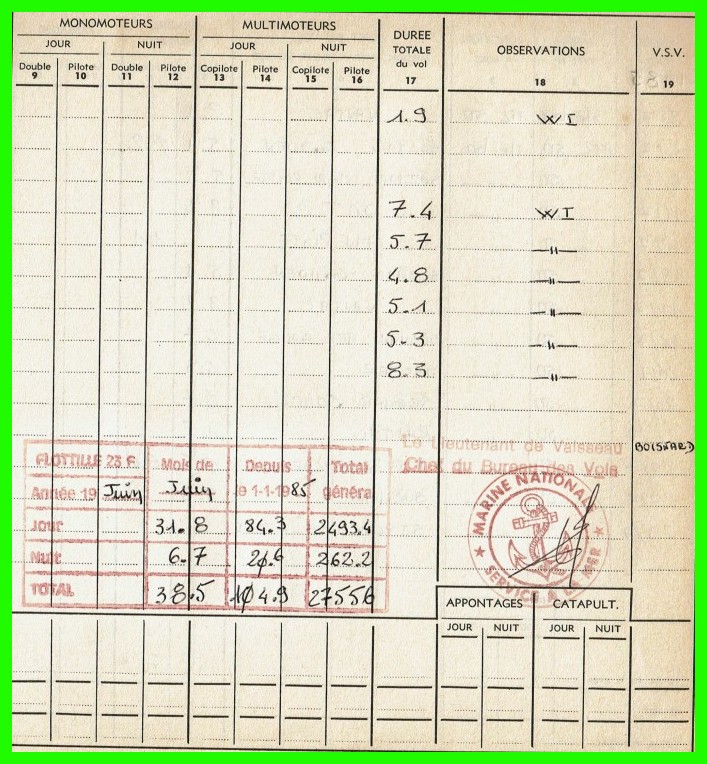 MONOMOTEURS MULTIMOTEURS DUREE TOTALE du vol OBSERVATIONS V.S.V.
JOUR NUIT JOUR NUIT
Double 9 Pilote 10 Double 11 Pilote 12 Copilote 13 Pilote 14 Copilote 15 Pilote 16 17 18 19
1.9 WI
7.4 WI
5.7 —"—
4.8 —"—
5.1 —"—
5.3 —"—
8.3 —"—
Le Lieutenant de Vaisseau BOISNARD
Chef du Bureau des Vols
FLOTTILLE 23 F Mois de Depuis Total
Année 19 Juin Juin le 1-1-1985 général
Jour 31.8 84.3 2493.4
Nuit 6.7 20.6 262.2
TOTAL 38.5 104.9 2755.6
MARINE NATIONALE
SERVICE A LA MER
APPONTAGES CATAPULT.
JOUR NUIT JOUR NUIT